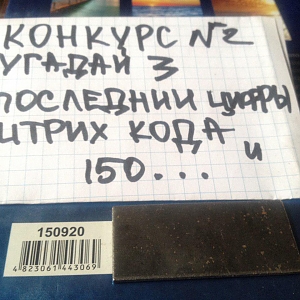 КОНКУРС №2
УГАДАЙ 3
ПОСЛЕДНИИ ЦИФРЫ
ШТРИХ КОДА И
150...
150920
4 823061 443069